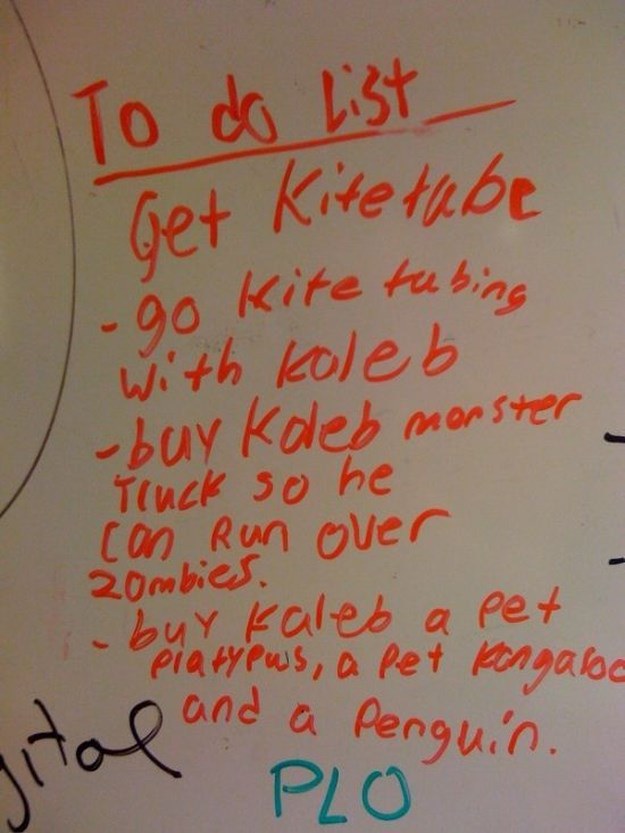 To do List
Get Kitetube
- go kite tubing
with kaleb
- buy Kaleb monster
Truck so he
can Run over
zombies.
- buy Kaleb a pet
platypus, a Pet Kangaroo
and a Penguin.
gital
PLO